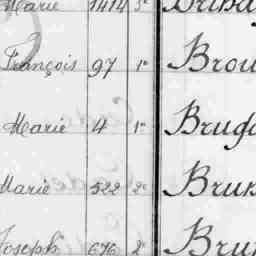 Marie 1414 3°
François 97 1° Brou
Marie 4 1° Brugo
Marie 522 2° Brun
Joseph 676 2° Brun